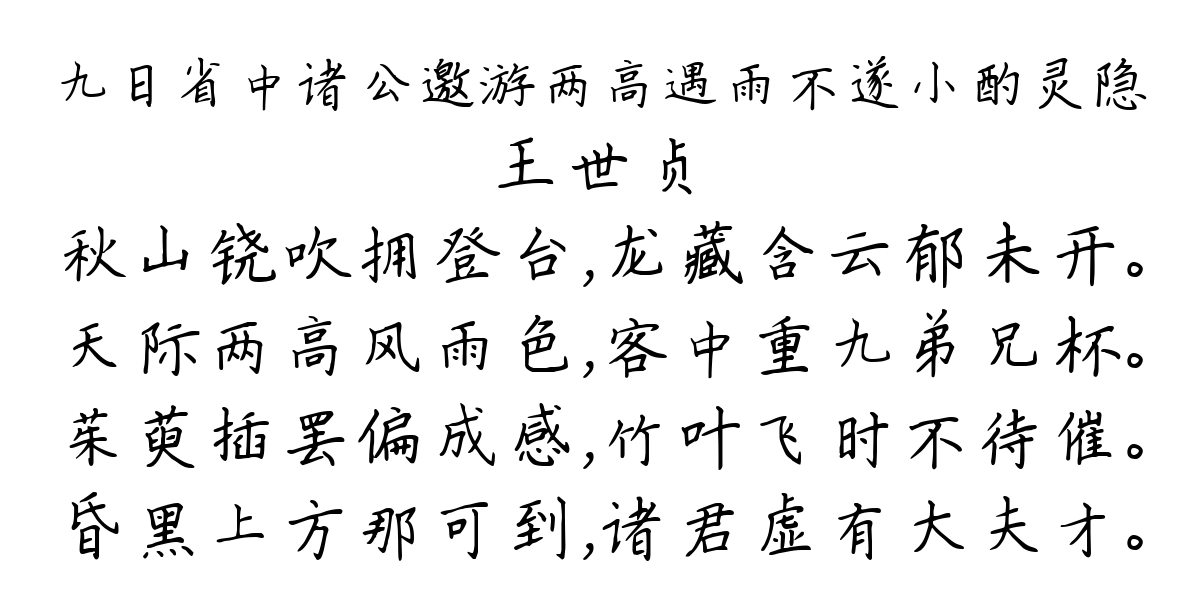 九日省中诸公邀游两高遇雨不遂小酌灵隐
王世贞
秋山铙吹拥登台,龙藏含云郁未开。
天际两高风雨色,客中重九弟兄杯。
茱萸插罢偏成感,竹叶飞时不待催。
昏黑上方那可到,诸君虚有大夫才。